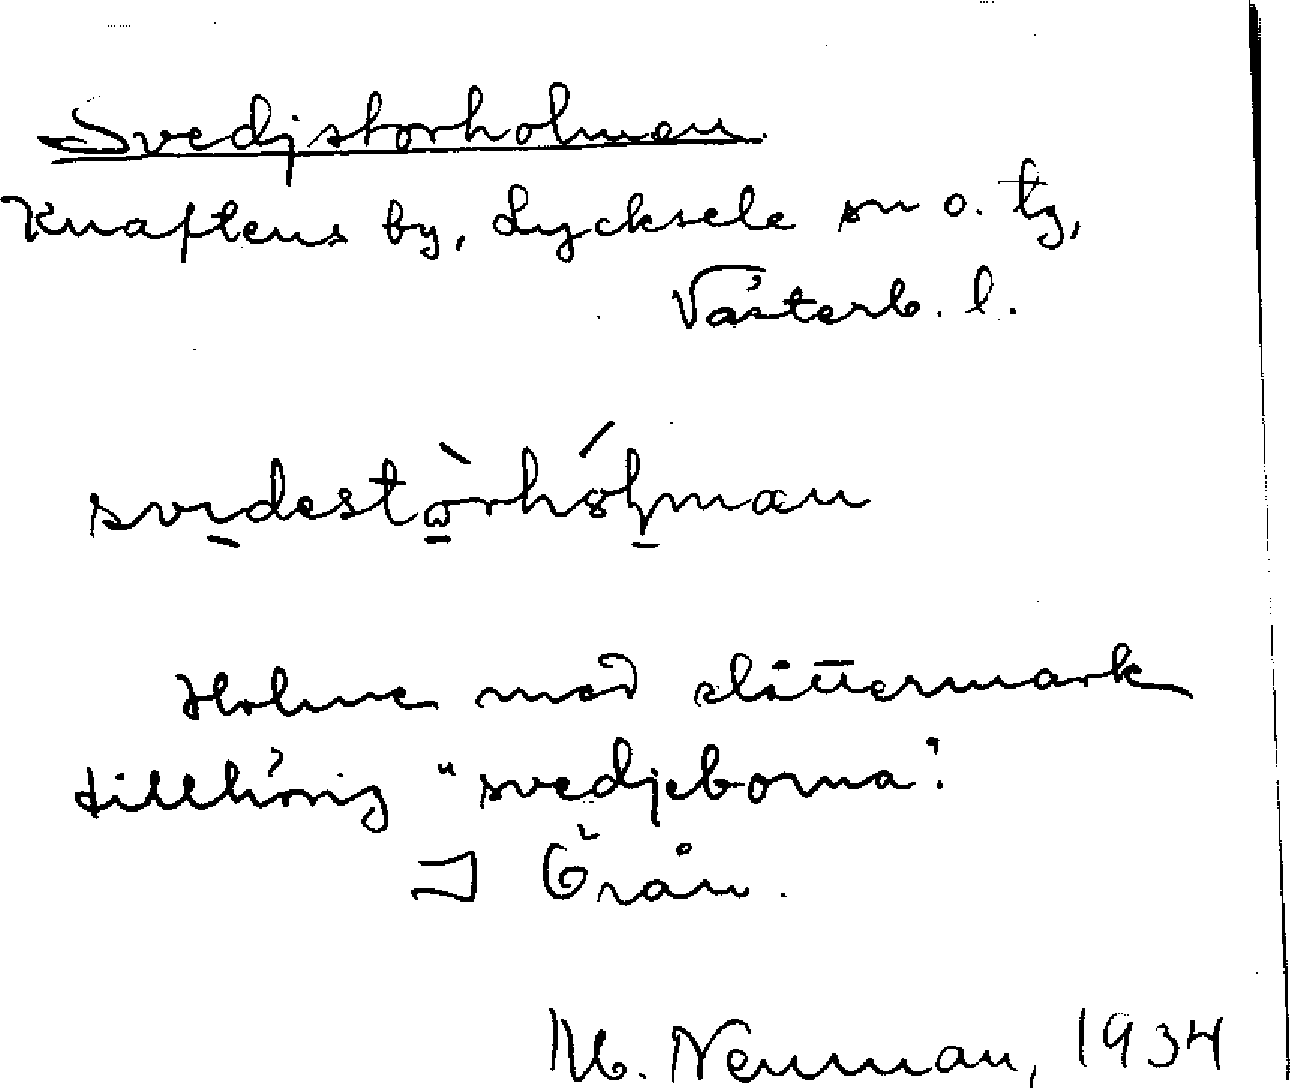 Svedjstorholmen.
Knaftens by, Lycksele sn o. tg,
Västerb. l.
Holme med slåttermark
tillhörig "svedjeborna".
I Örån.
M. Neuman, 1934